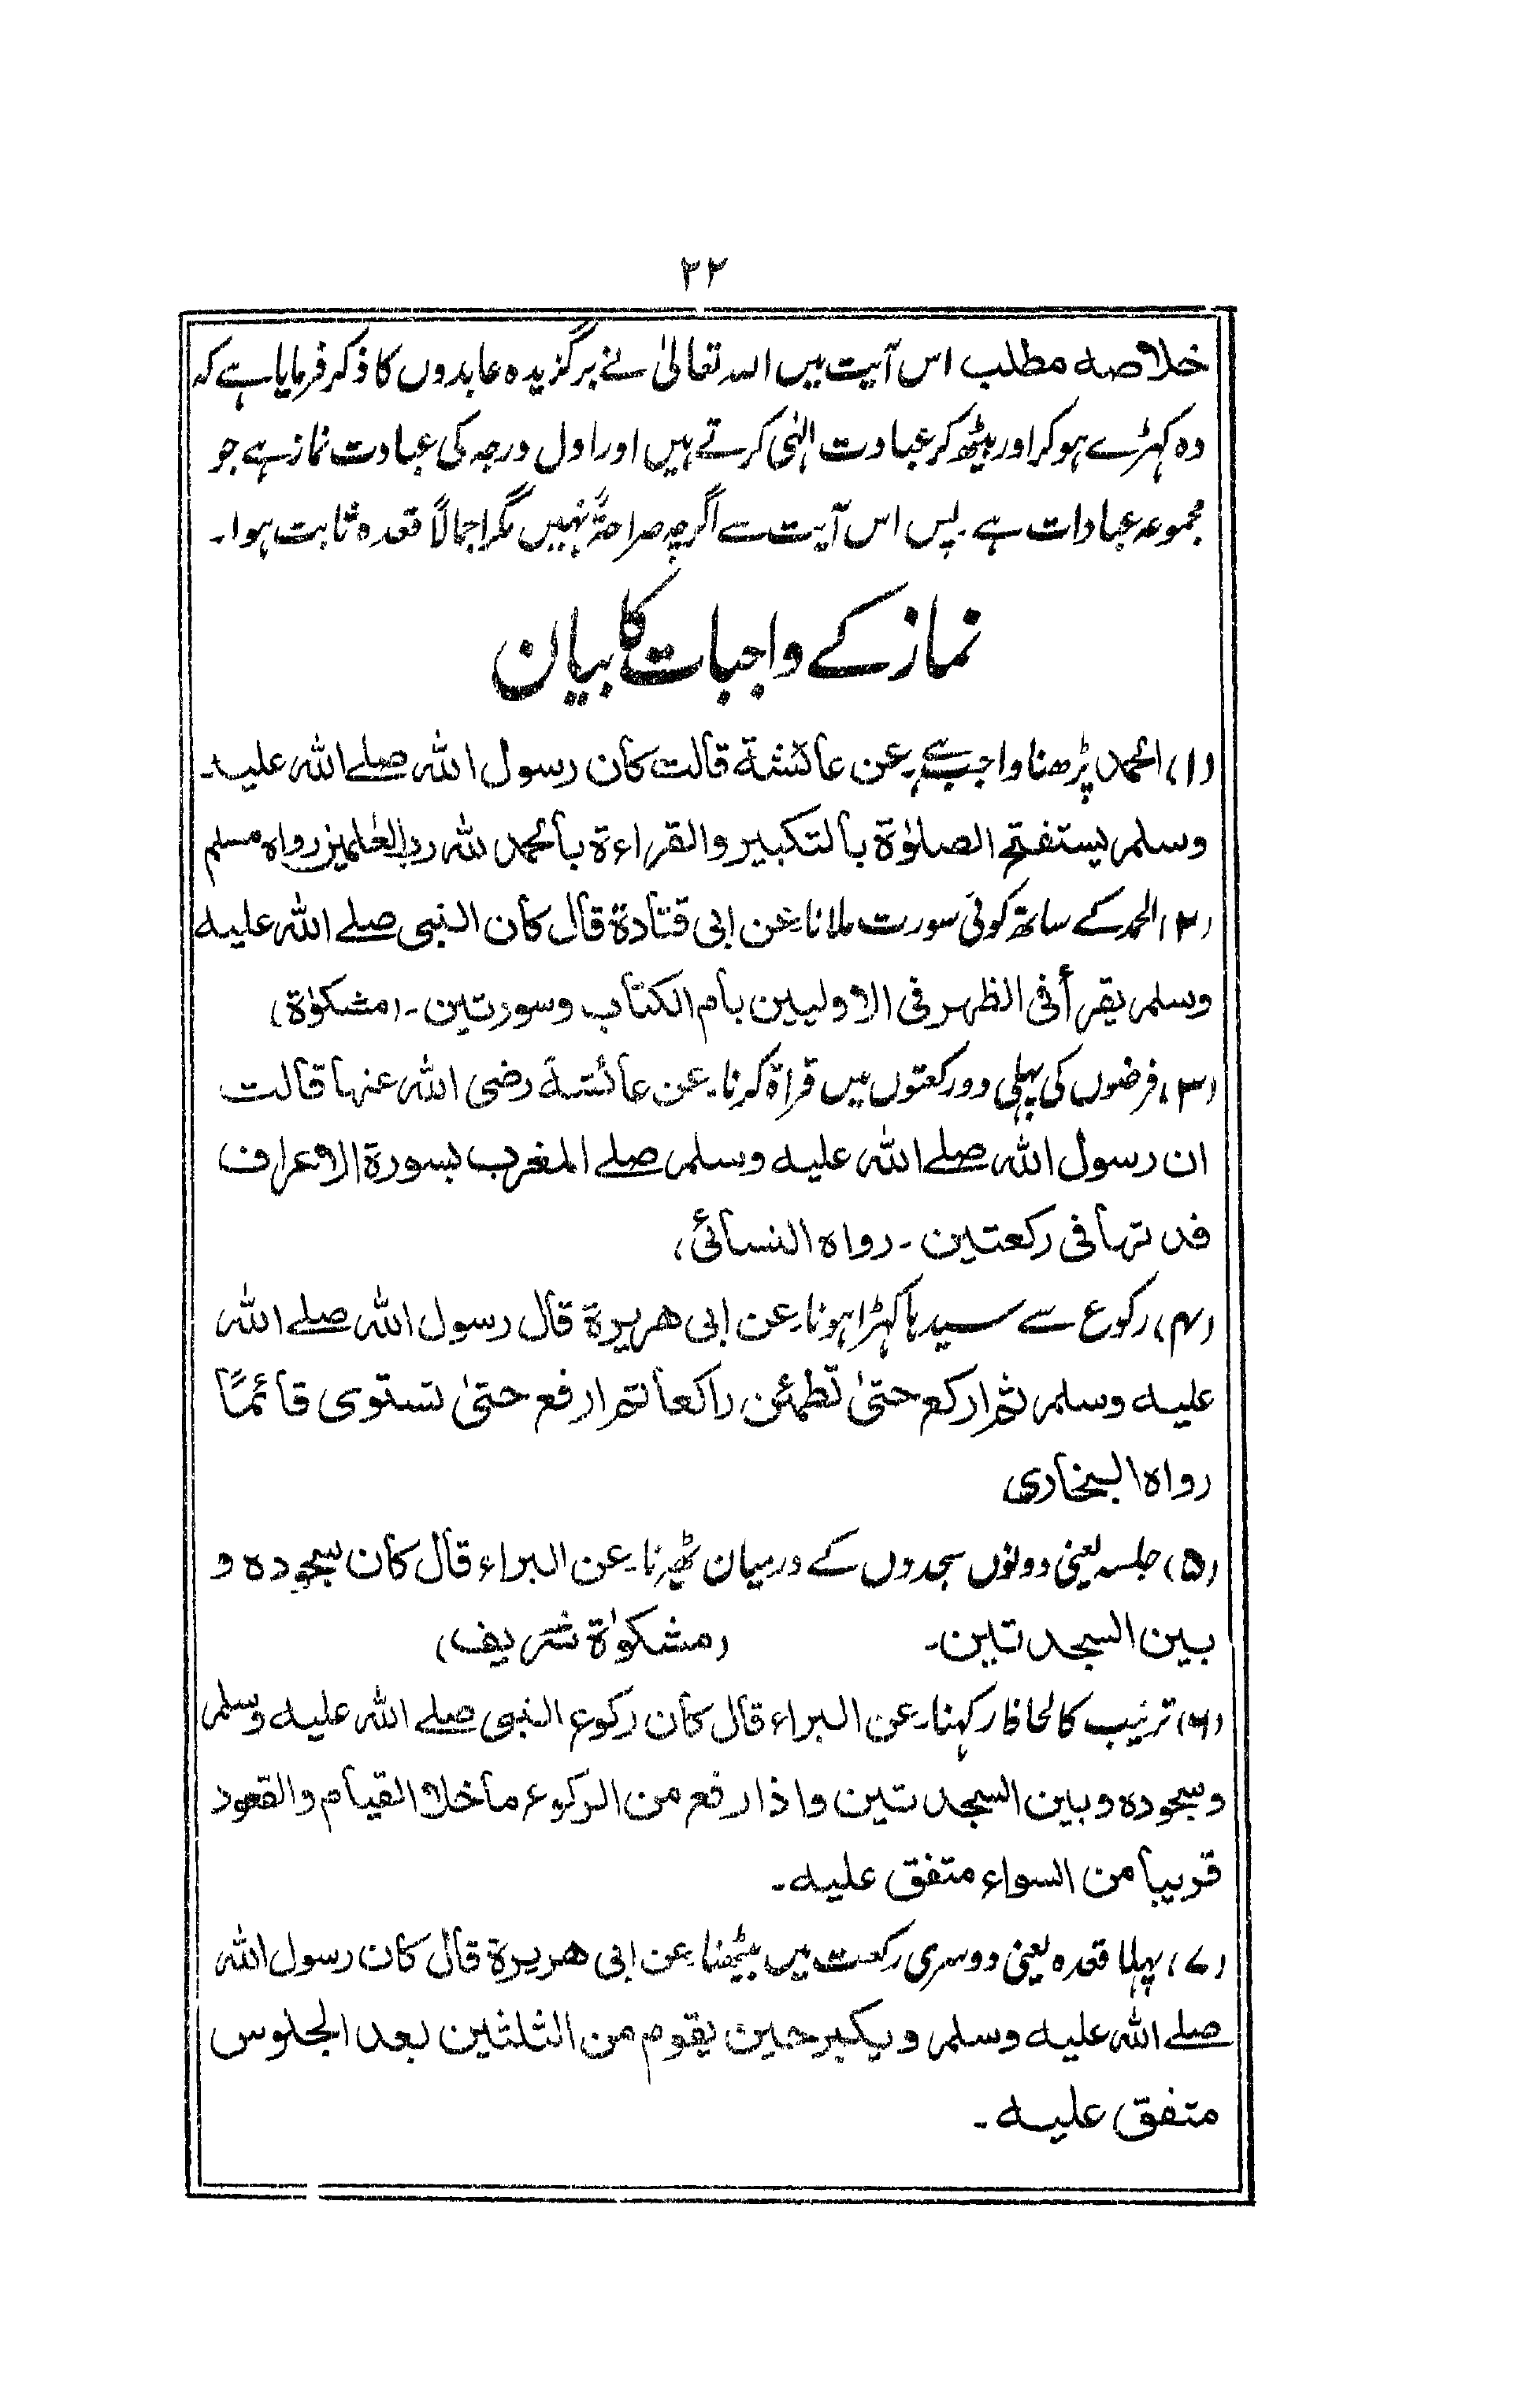 ۲۲
خلاصہ مطلب اس آیت میں اللہ تعالیٰ نے برگزیدہ عابدوں کا ذکر فرمایا ہے کہ
وہ کہڑے ہو کر اور بیٹھ کر عبادت الٰہی کرتے ہیں اور اول درجہ کی عبادت نماز ہے جو
مجموعہ عبادات ہے۔ پس اس آیت سے اگرچہ صراحۃً نہیں مگر اجمالاً قعدہ ثابت ہوا۔
نماز کے واجبات کا بیان
(۱) الحمد پڑھنا واجب ہے۔ عن عائشة قالت كان رسول الله صلے الله عليه۔
وسلم يستفتح الصلوٰة بالتكبير والقراءة بالحمد لله رب العٰلمين رواه مسلم
(۲) الحمد کے ساتھ کوئی سورت ملانا۔ عن ابى قتادة قال كان النبى صلے الله عليه
وسلم يقرأ فى الظهر فى الاوليين بام الكتاب وسورتين۔ (مشكوٰة)
(۳) فرضوں کی پہلی دو رکعتوں میں قراۃ کرنا۔ عن عائشة رضى الله عنها قالت
ان رسول الله صلے الله عليه وسلم صلے المغرب بسورة الاعراف
فدتها فى ركعتين۔ رواه النسائى،
(۴) رکوع سے سیدہا کہڑا ہونا۔ عن ابى هريرة قال رسول الله صلے الله
عليه وسلم ثم اركع حتىٰ تطمئن راكعا ثم ارفع حتىٰ تستوى قائمًا
رواه البخارى
(۵) جلسہ یعنی دونوں سجدوں کے درمیان ٹھیرنا۔ عن البراء قال كان سجوده و
بين السجدتين۔ (مشكوٰة شريف)
(۶) ترتیب کا لحاظ رکہنا۔ عن البراء قال كان ركوع النبى صلے الله عليه وسلم
وسجوده وبين السجدتين واذا رفع من الركوع ما خلا القيام والقعود
قريبا من السواء متفق عليه۔
(۷) پہلا قعدہ یعنی دوسری رکعت میں بیٹھنا۔ عن ابى هريرة قال كان رسول الله
صلے الله عليه وسلم ويكبر حين يقوم من الثلثين بعد الجلوس
متفق عليه۔